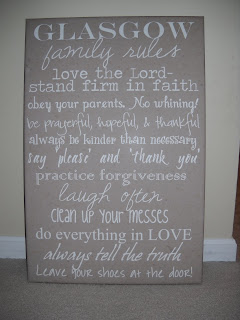 GLASGOW
family rules
love the Lord-
stand firm in faith
obey your parents. No whining!
be prayerful, hopeful, & thankful
always be kinder than necessary
say "please" and "thank you"
practice forgiveness
laugh often
clean up your messes
do everything in LOVE
always tell the truth
Leave your shoes at the door!